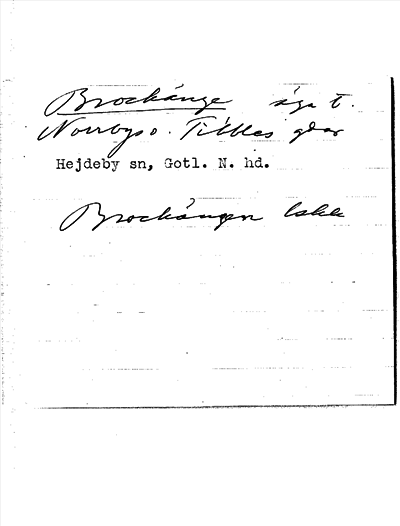 Brockänge äga t.
Norrbys o. Tibbles gdar
Hejdeby sn, Gotl. N. hd.
Brockängen